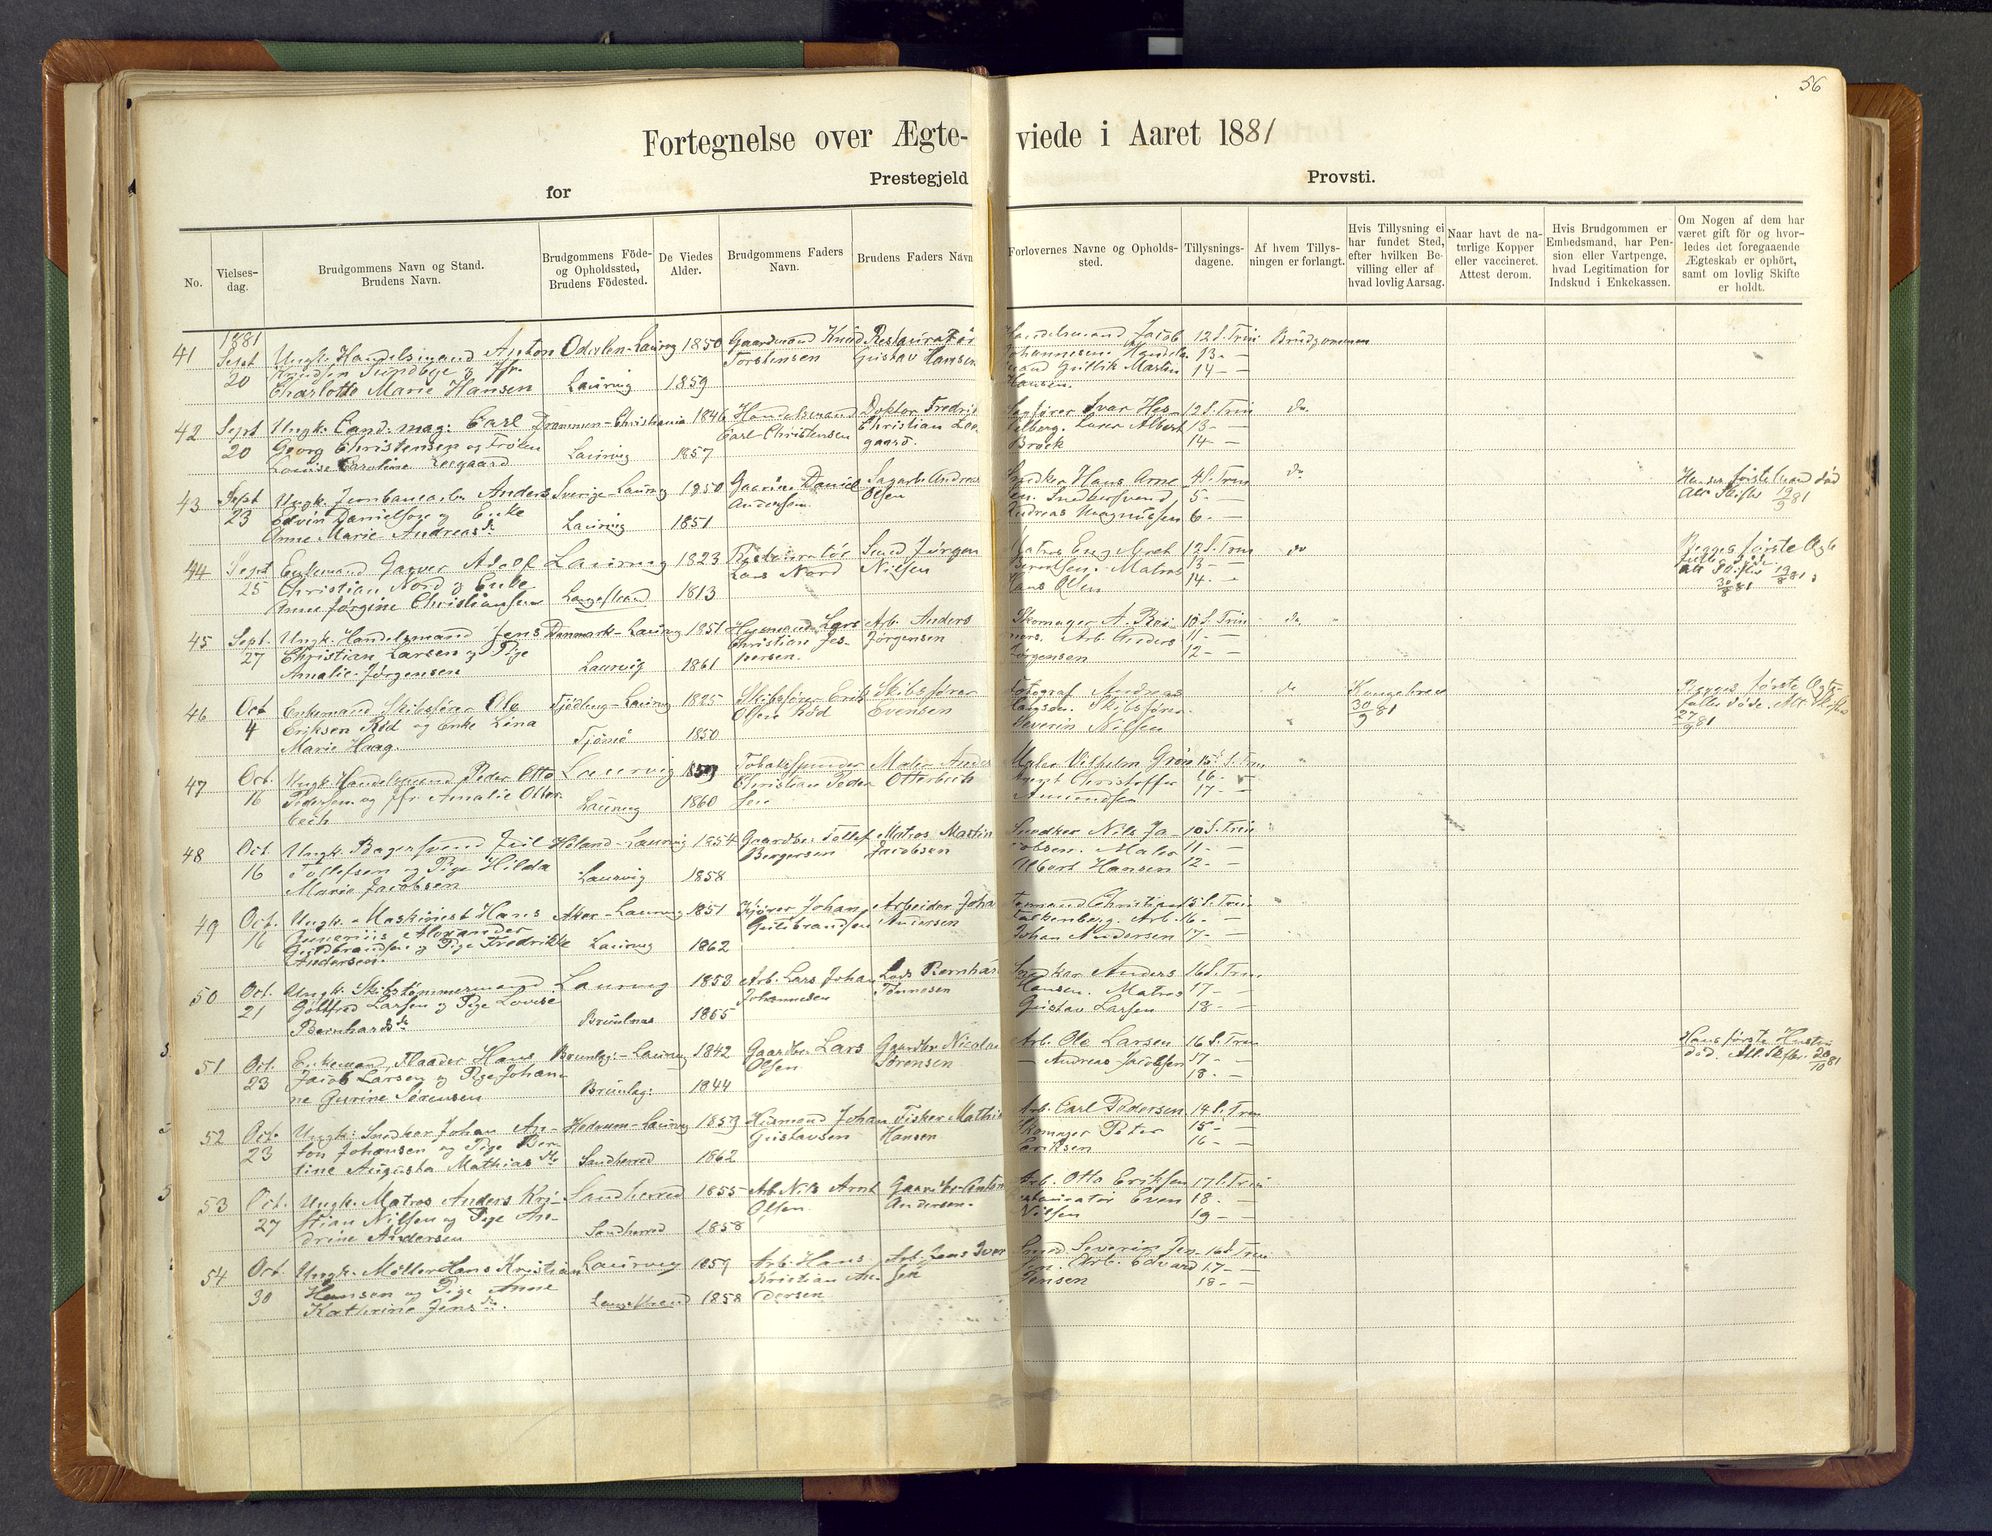 56
Fortegnelse over Ægteviede i Aaret 1881
for Prestegjeld Provsti.
No.
Vielsesdag.
Brudgommens Navn og Stand.
Brudens Navn.
Brudgommens Föde- og Opholdssted, Brudens Födested.
De Viedes Alder.
Brudgommens Faders Navn.
Brudens Faders Navn
Forlovernes Navne og Opholdssted.
Tillysningsdagene.
Af hvem Tillysningen er forlangt.
Hvis Tillysning ei har fundet Sted, efter hvilken Bevilling eller af hvad lovlig Aarsag.
Naar havt de naturlige Kopper eller vaccineret. Attest derom.
Hvis Brudgommen er Embedsmand, har Pension eller Vartpenge, hvad Legitimation for Indskud i Enkekassen.
Om Nogen af dem har været gift för og hvorledes det foregaaende Ægteskab er ophört, samt om lovlig Skifte er holdt.
1881
41 Sept 20 Ungk. Handelsmand Anton
Knudsen Sundbye og Jfr.
Charlotte Marie Hansen
Laurvig
1850
1859
Gaardmand Knud
Torstensen
Restauratör
Gustav Hansen
Handelsmand Jacob
Johannesen Handels
mand Martin
Hansen.
12 S. Trin
13 - -
14 - -
Brudgommen
42 Sept 20 Ungk. Cand. mag: Carl
Georg Christensen og Frøken
Louise Caroline Leegaard
Drammen-Christiania
Laurvig
1846
1857
Handelsmand
Carl Christensen
Doktor Fredrik
Christian Lee
gaard.
Lærer Albert
Brock
12 S. Trin
13 - -
14 - -
do
43 Sept 23 Ungk. Jernbanearb. Anders
Edvin Danielson og Enke
Anne Marie Andreasd.
Sverige-Laurvig
Laurvig
1850
1851
Daniel
Andersen
Sagarb. Andreas
Olsen
Snedker Hans Arne
sen. Snedkersvend
Andreas Magnussen
4 S. Trin
5 -
6 - -
do
Hendes første Mand død
Att. Skifte 19/9 81
44 Sept 25 Enkemand Garver Adolf
Christian Nord og Enke
Anne Jørgine Christiansen
Laurvig
Langestrand
1823
1813
Lars Nord
Smed Jørgen
Nielsen
Matros
Berntsen. Matros
Hans Olsen
12 S. Trin
13 - -
14 - -
do
Begges første Ægte
fæller døde
Att Skifte 19/8 81
30/8 81
45 Sept. 27 Ungk. Handelsmand Jens
Christian Larsen og Pige
Amalie Jørgensen
Danmark-Laurvig
Laurvig
1851
1861
Husmand Lars
Christian Jes
persen.
Arb. Anders
Jørgensen
Skomager A. Rei
mers. Arb. Anders
Jørgensen
10 S. Trin
11 - -
12 - -
do
46 Oct 4 Enkemand Skibsfører Ole
Eriksen Rød og Enke Lina
Marie Haag.
Tjømø
1825
1850
Skibsfører Erik
Olsen Rød
Skibsfører
Evensen
Fotograf Andreas
Skibsfører
Severin Nilsen
do
Kongebrev
30/9 81
Begges første Ægte
fæller døde. Att. Skifte
27/9 81
47 Oct. 16 Ungk. Handelsmand Peder Otto
Pedersen og Jfr. Amalie Otter
bech
Laurvig
Laurvig
1859
1860
Tobakspinder
Christian Peder
sen
Maler Anders
Otterbech
Maler Vilhelm Grøn
Agent Christoffer
Amundsen
15 S. Trin
16 - -
17 - -
48 Oct 16 Ungk. Bagersvend Juul
Tollefsen og Pige Hilda
Marie Jacobsen
Høland-Laurvig
Laurvig
1854
1858
Gaardbr. Tollef
Bergersen
Matros Martin
Jacobsen
Snedker Nils Ja-
cobsen. Maler
Albert Hansen
10 S. Trin
11 - -
12 - -
49 Oct. 16 Ungk. Maskinist Hans
Alexander
Guldbrandsen og Pige Fredrikke
Andersen.
Aker-Laurvig
Laurvig
1851
1862
Kjører Johan
Gulbrandsen
Arbeider Johan
Andersen
Formand Christian
Falkenberg. Arb.
Johan Andersen
15 S. Trin
16 - -
17 - -
50 Oct. 21 Ungk. Skibstømmermand
Gottfred Larsen og Pige Lovise
Bernhardsd.
Laurvig
Brunlnæs
1853
1855
Arb. Lars Johan
Johannesen
Lods Bernhard
Tønnesen
Snedker Anders
Hansen. Matros
Gustav Larsen
16 S. Trin
17 - -
18 - -
51 Oct. 23 Enkemand, Flaader Hans
Jacob Larsen og Pige Johan
ne Gurine Sørensen
Brunlag:-Laurvig
Brunlag:
1842
1844
Gaardbr. Lars
Olsen
Gaardbr. Nicolai
Sørensen
Arb. Ole Larsen
- Andreas Jacobsen
16 S. Trin
17 - -
18 - -
Hans første Hustru
død. Att. Skifte 20/10 81
52 Oct. 23 Ungk: Snedker Johan An-
ton Johansen og Pige Ber
tine Augusta Mathiasd.
Hedrum-Laurvig
Sandherred
1859
1862
Husmand Johan
Gustavsen
Fisker Mathias
Hansen
Arb. Carl Pedersen
Skomager Peter
Eriksen
14 S. Trin
15 - -
16 - -
53 Oct. 27 Ungk. Matros Anders Kri-
stian Nilsen og Pige An-
drine Andersen
Sandherred
Sandherred
1855
1858
Arb. Nils Arnt
Olsen.
Gaardbr. Anton
Andersen.
Arb. Otto Eriksen
Restauratør Even
Nilsen
17 S. Trin
18 - -
19 - -
54 Oct. 30 Ungk. Møller Hans Kristian
Hansen og Pige Anne
Kathrine Jensd.
Laurvig
Langestrand
1859
1858
Arb. Hans
Kristian An-
dersen
Arb. Jens Iver
sen
Smed. Severin Jen-
sen. Arb. Edvard
Jensen
16 S. Trin
17 - -
18 - -